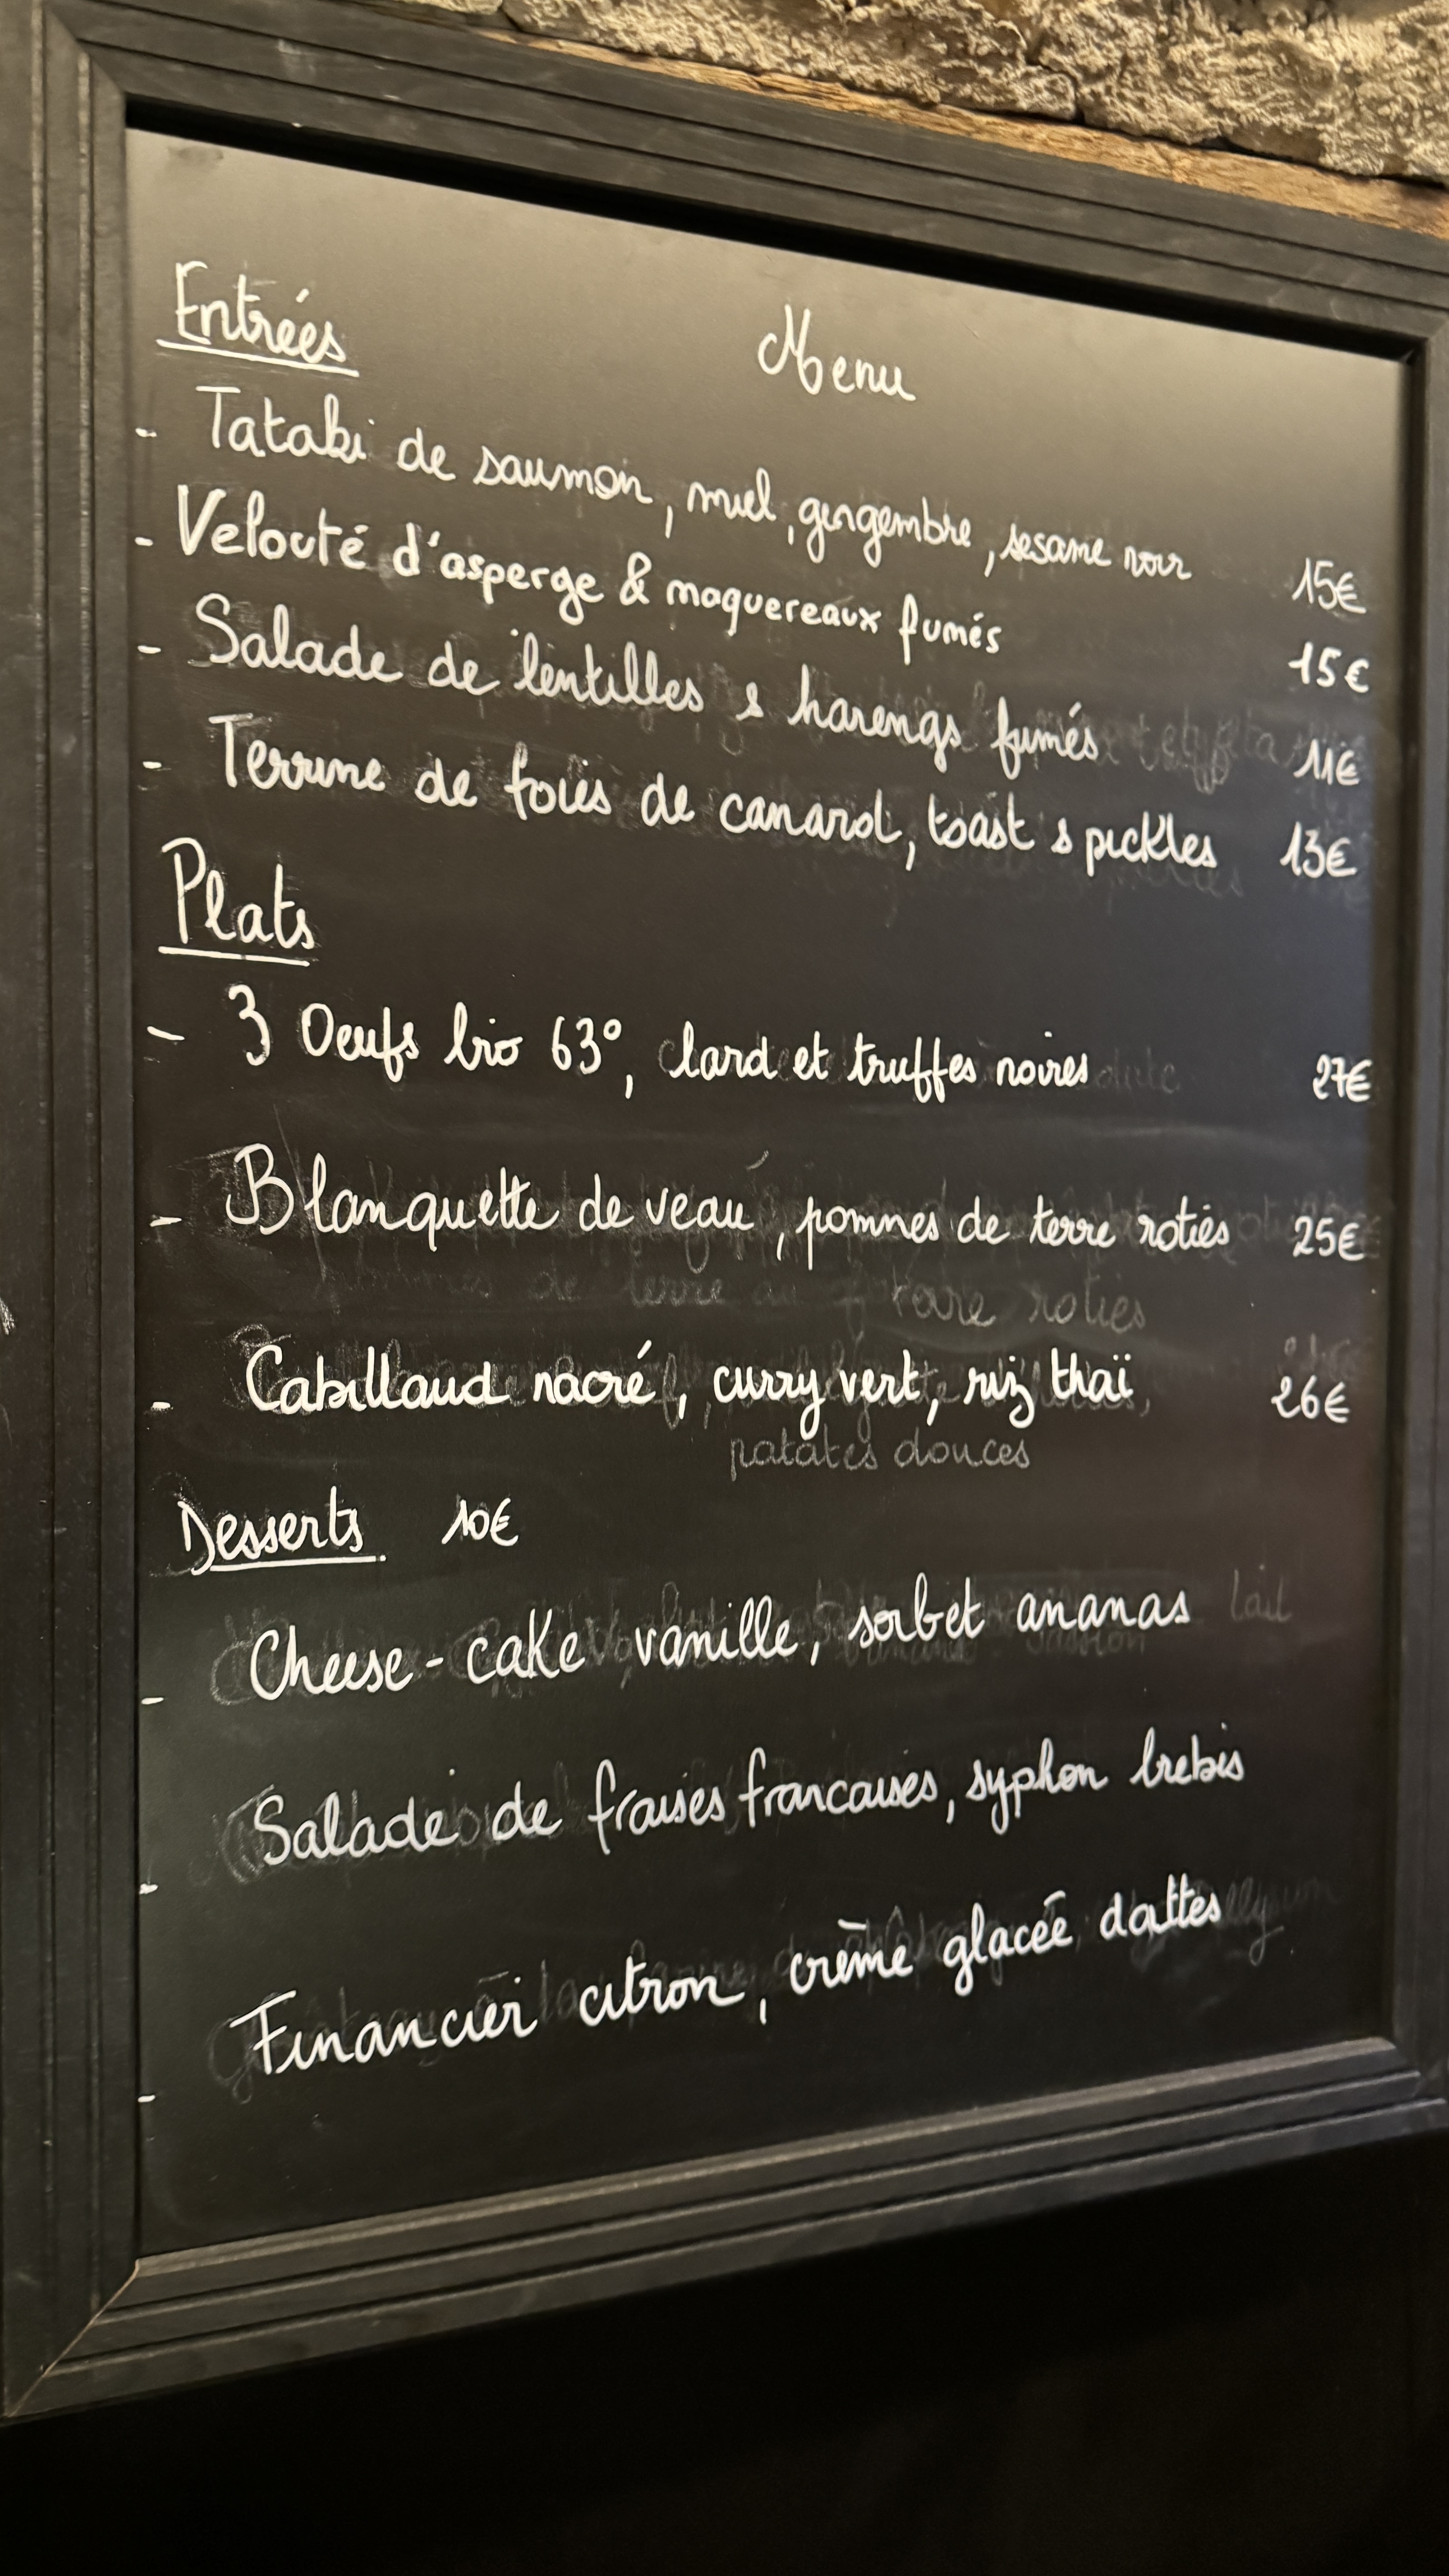 Menu
Entrées
- Tataki de saumon, miel, gingembre, sesame noir 15€
- Velouté d'asperge & maquereaux fumés 15€
- Salade de lentilles & harengs fumés 11€
- Terrine de foies de canard, toast & pickles 13€
Plats
- 3 Oeufs bio 63°, lard et truffes noires 27€
- Blanquette de veau, pommes de terre roties 25€
- Cabillaud nacré, curry vert, riz thaï 26€
patates douces
Desserts 10€
- Cheese-cake vanille, sorbet ananas
- Salade de fraises francaises, syphon brebis
- Financier citron, crème glacée dattes